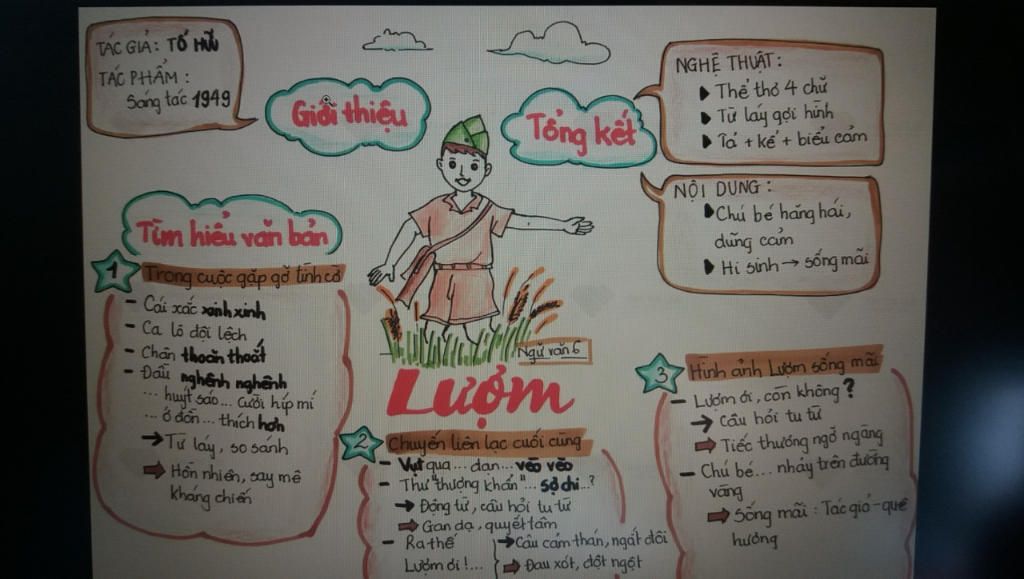 TÁC GIẢ: TỐ HỮU
TÁC PHẨM:
Sáng tác 1949
Giới thiệu
Tổng kết
NGHỆ THUẬT:
Thể thơ 4 chữ
Từ láy gợi hình
Tả + kể + biểu cảm
NỘI DUNG:
Chú bé hăng hái,
dũng cảm
Hi sinh → sống mãi
Tìm hiểu văn bản
1 Trong cuộc gặp gỡ tình cờ
- Cái xắc xinh xinh
- Ca lô đội lệch
- Chân thoăn thoắt
- Đầu nghênh nghênh
... huýt sáo... cười híp mí
... ở đồn... thích hơn
→ Từ láy, so sánh
⇒ Hồn nhiên, say mê
kháng chiến
Ngữ văn 6
Lượm
2 Chuyến liên lạc cuối cùng
- Vụt qua... đạn... vèo vèo
- Thư "thượng khẩn"... sợ chi...?
→ Động từ, câu hỏi tu từ
⇒ Gan dạ, quyết tâm
- Ra thế
Lượm ơi!...
→ Câu cảm thán, ngắt đôi
⇒ Đau xót, đột ngột
3 Hình ảnh Lượm sống mãi
- Lượm ơi, còn không?
→ Câu hỏi tu từ
⇒ Tiếc thương ngỡ ngàng
- Chú bé... nhảy trên đường
vàng
⇒ Sống mãi: Tác giả - quê
hương